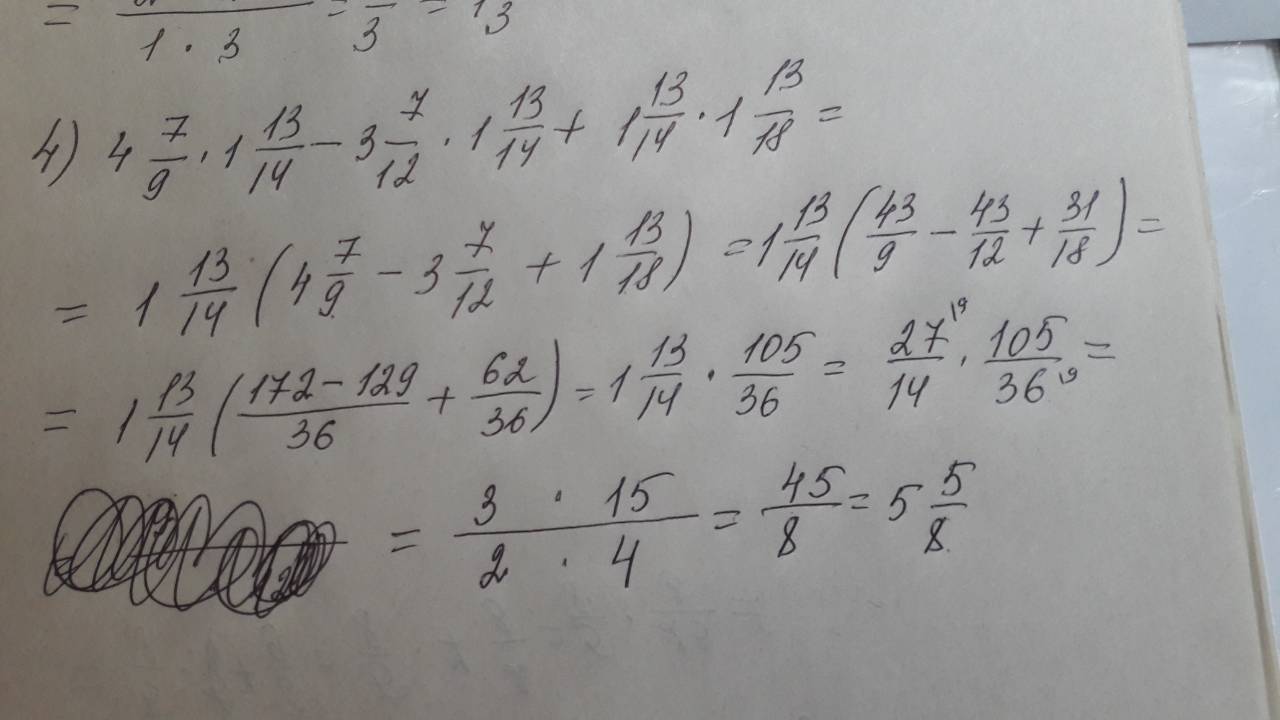 = 1 · 3 = /3 = 1 3
4) 4 7/9 · 1 13/14 − 3 7/12 · 1 13/14 + 1 13/14 · 1 13/18 =
= 1 13/14 (4 7/9 − 3 7/12 + 1 13/18) = 1 13/14 (43/9 − 43/12 + 31/18) =
= 1 13/14 ((172 − 129)/36 + 62/36) = 1 13/14 · 105/36 = 27/14 |9 · 105/36 |9 =
= (3 · 15)/(2 · 4) = 45/8 = 5 5/8